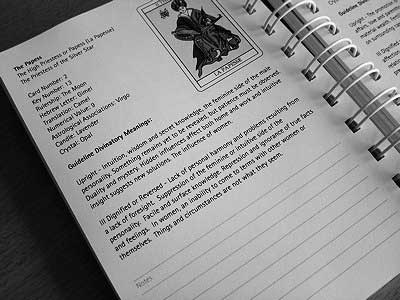 The Papess
The High Priestess or Papess (La Papesse)
The Priestess of the Silver Star
Card Number: 2
Key Number: 13
Rulership: The Moon
Hebrew Letter: Gimel
Translation: Camel
Numerical Value: 9
Astrological Associations: Virgo
Candle: Lavender
Crystal: Opal
LA PAPESSE
Guideline Divinatory Meanings:
Upright - Intuition, wisdom and secret knowledge, the feminine side of the male
personality. Something remains yet to be revealed, but prudence must be observed.
Duality and mystery. Hidden influences affect both home and work and intuitive
insight suggests new solutions. The influence of women.
Ill Dignified or Reversed - Lack of personal harmony and problems resulting from
a lack of foresight. Suppression of the feminine or intuitive side of the
personality. Facile and surface knowledge. Repression and ignorance of true facts
and feelings. In women, an inability to come to terms with other women or
themselves. Things and circumstances are not what they seem.
Notes
Guideline Divinatory
Upright - The promise
affairs, love and
material
on surrounding
Ill Dignified